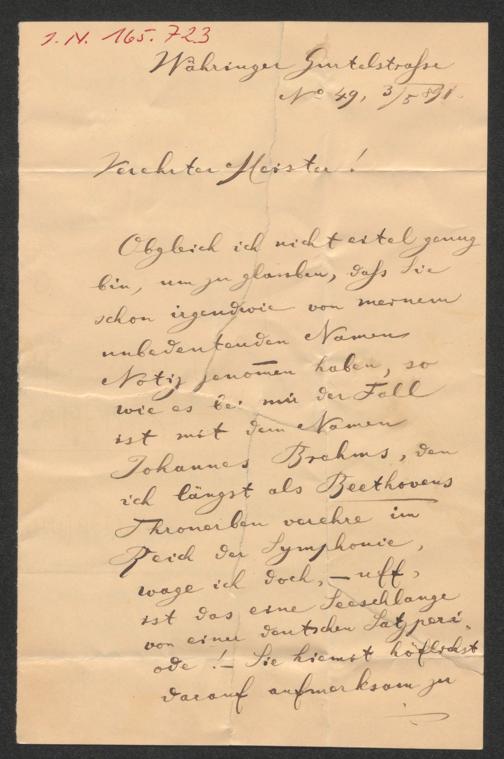 I. N. 165.723
Währinger Gurtelstrasse
No 49, 3/5 891.
Verehrter Meister!
Obgleich ich nicht eitel genug
bin, um zu glauben, dass Sie
schon irgendwie von meinem
unbedeutenden Namen
Notiz genom̅en haben, so
wie es bei mir der Fall
ist mit dem Namen
Johannes Brahms, den
ich längst als Beethovens
Thronerben verehre im
Reich der Symphonie,
wage ich doch, – uff,
ist das eine Seeschlange
von einer deutschen Satzperi-
ode! – Sie hiemit höflichst
darauf aufmerksam zu